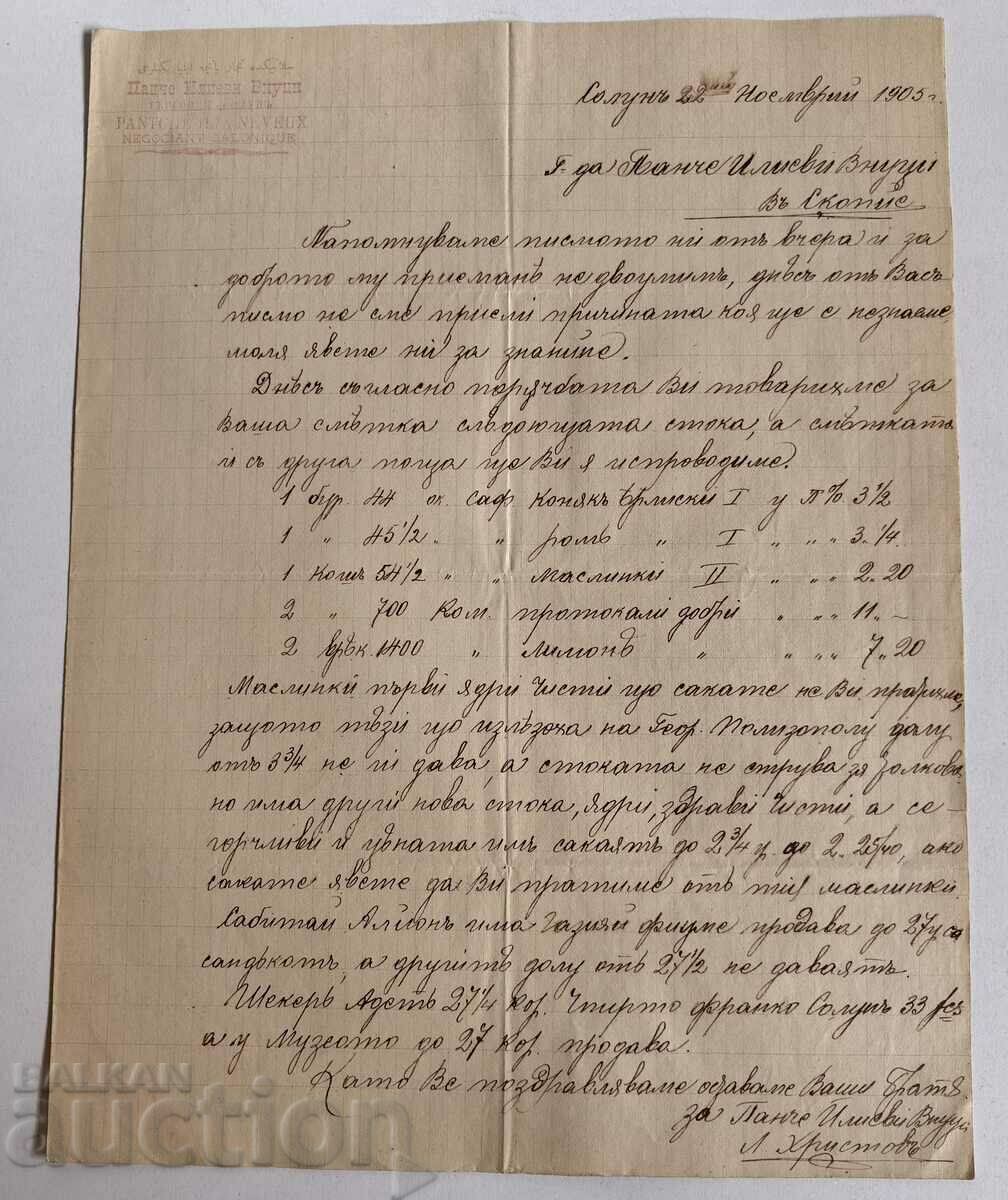 Панче Илиеви Внуци
NEGOCIANT SALONIQUE
Солунъ 22 Ноемврий 1905 г.
Г-да Панче Илиеви Внуци
Въ Скопие
Напомнуваме писмото ни отъ вчера и за
доброто му приемание не двоумимъ, днѣсъ отъ Васъ
писмо не сме приели причината коя ще е незнаеме,
моля явете ни за знание.
Днѣсъ съгласно порѫчбата Ви товарихме за
Ваша смѣтка слѣдующата стока, а смѣтката
и съ друга поща ще Ви я испроводиме.
1 бур. 44 ок. саф. конякъ I у п% 3 1/2
1 „ 45 1/2 „ „ ромъ „ I „ „ „ 3„ 1/4
1 Кошъ 54 1/2 „ „ маслинки II „ „ „ 2„20
2 „ 700 Ком. протокали добри „ „ „ 11„ –
2 врѣк. 1400 „ Лимонъ „ „ „ „ 7„20
Маслинки първи ядри чисти що сакате не Ви пратихме,
защото тѣзи що излѣзоха на Геор. Полизополу долу
отъ 3 3/4 не ги дава, а стоката не струва за толкова
но има други нова стока, ядри, здрави чисти, а се
горчливи и цѣната имъ сакаятъ до 2 3/4 до 2„25, ако
сакате явете да Ви пратиме отъ тия маслинки.
Сабитай Алионъ има газияй фиуме продава до 27
сандѣкотъ, а другитѣ долу отъ 27 1/2 не даваятъ.
Шекеръ Адетъ 27 1/4 кор. Спирто франко Солунъ 33
а у Музеото до 27 кор. продава.
Като Ве поздравляваме оставаме Ваши Братя
за Панче Илиеви Внуци
Л Христовъ
BALKAN
auction